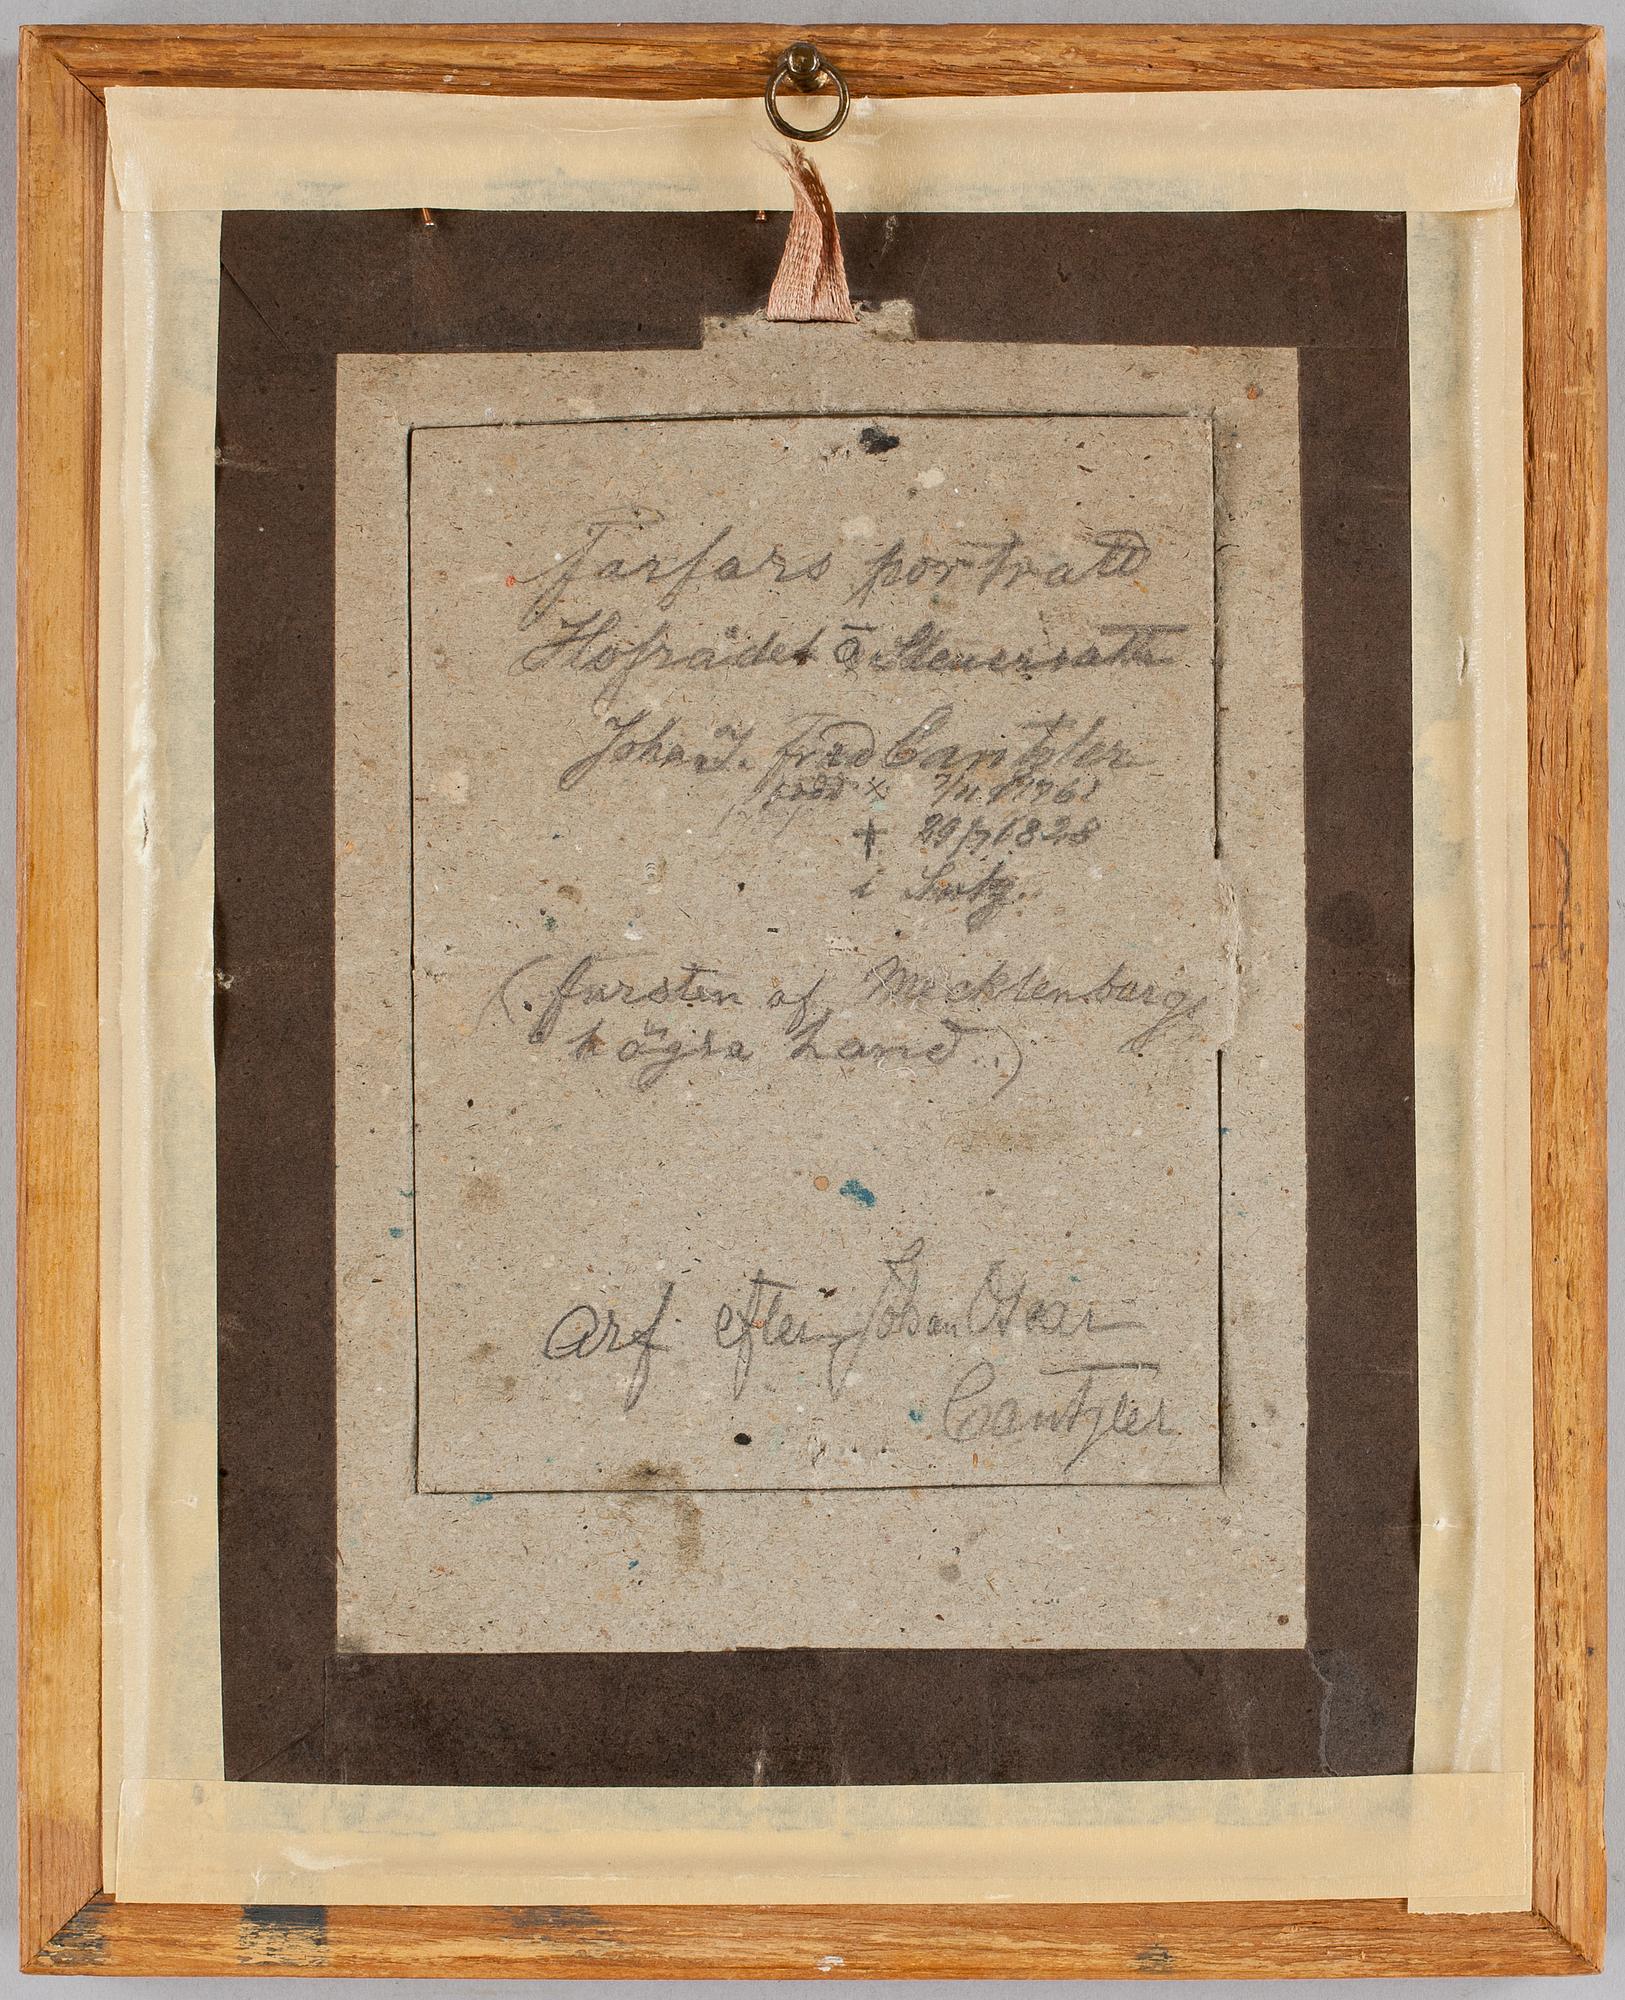 Farfars porträtt
Hofrådet o Steuerrath
Joh. J. Fred Cantzler
född × 7/11 1762
† 29/7 1828
i
(fursten af Mecklenburgs
högra hand.)
Arf efter Johan Oscar
Cantzler